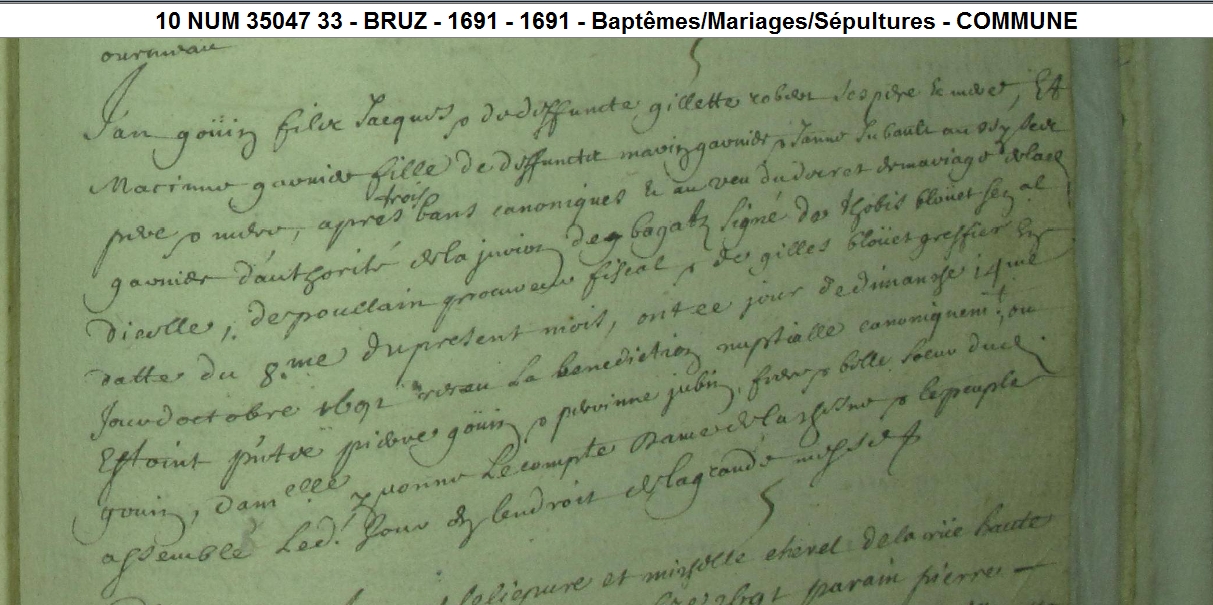 10 NUM 35047 33 - BRUZ - 1691 - 1691 - Baptêmes/Mariages/Sépultures - COMMUNE
Jan goüin filx Jacques & de deffuncte gillette robert ses pere & mere, Et
Macinne garnier fille de deffunctz garnier & Janne Jubault aussy ses
pere & mere, apres trois bans canoniques & au veu du decret de mariage de lad
garnier d'authorité de la jurion de signé de thobis bloüet sen al
dicelle, de poullain procureur fiscal & de gilles bloüet greffier En
datte du 8.me du present mois, ont ce jour de dimanche 14me
Jour d'octobre 1691 receu La benediction nuptialle canoniquemt, ou
Estoint p'nts pierre goüin & perrinne jubin, frere & belle soeur dud
goüin, damelle Yvonne Lecompte Dame de la & le peuple
assemblé Led. Jour En lendroit de la grande messe
et cherel de la rüe haute
parain pierre